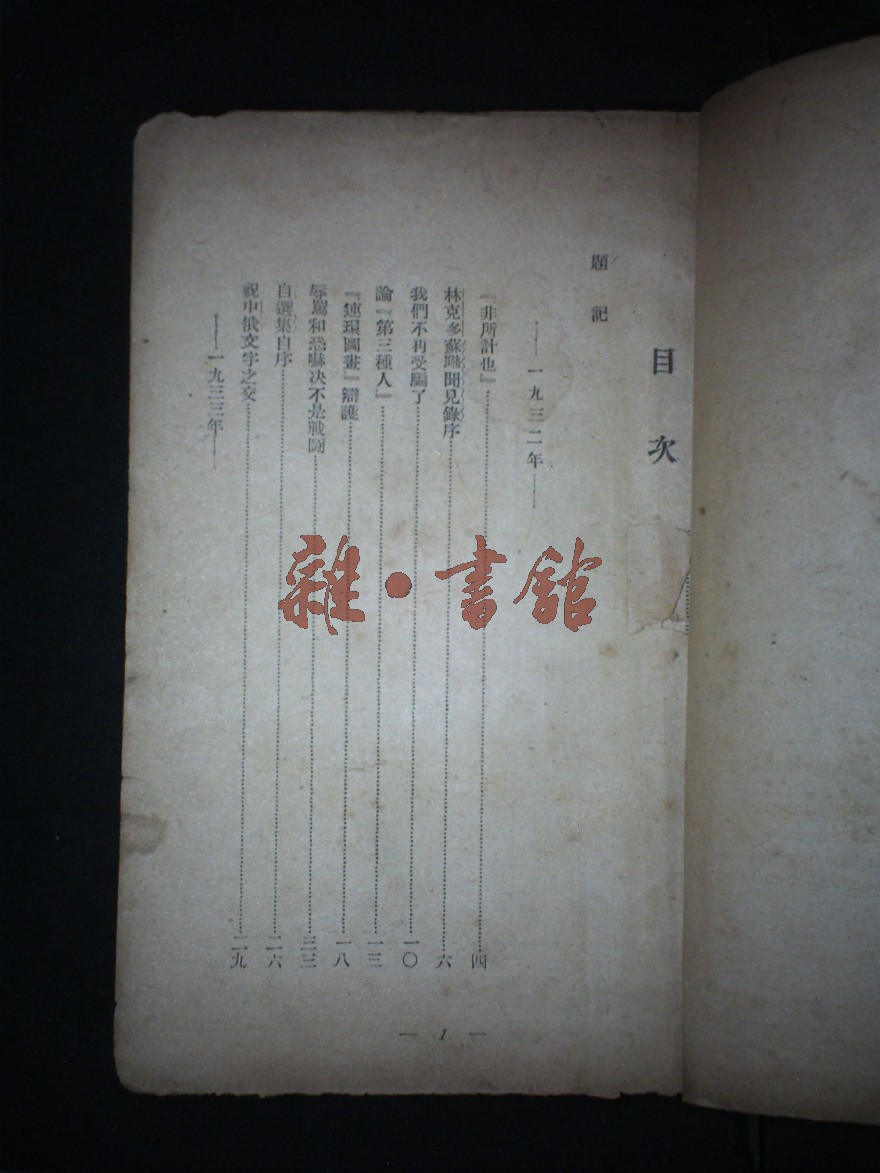 目次
題記
——一九三二年——
『非所計也』……四
林克多蘇聯聞見錄序……六
我們不再受騙了……一〇
論『第三種人』……一三
『連環圖畫』辯護……一八
辱罵和恐嚇决不是戰鬪……二三
自選集自序……二六
祝中俄文字之交……二九
——一九三三年——
— 1 —
雜·書館